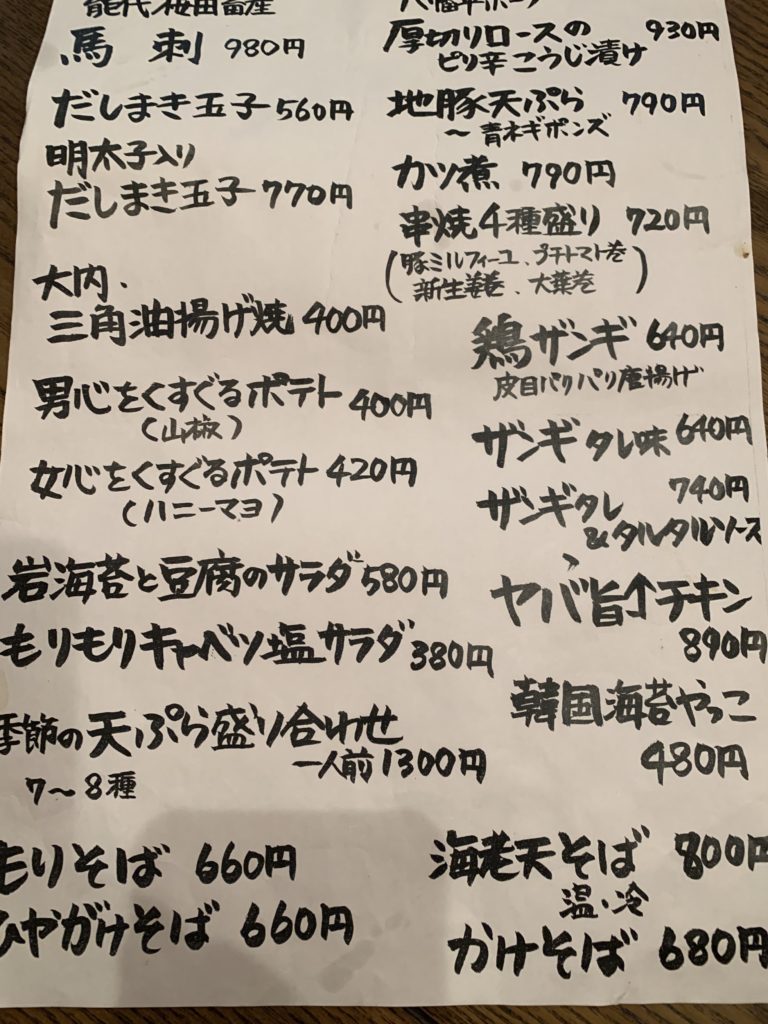 能代 桜田畜産
馬刺 980円
だしまき玉子 560円
明太子入り
だしまき玉子 770円
大内.
三角油揚げ焼 400円
男心をくすぐるポテト 400円
(山椒)
女心をくすぐるポテト 420円
(ハニーマヨ)
岩海苔と豆腐のサラダ 580円
もりもりキャベツ塩サラダ 380円
季節の天ぷら盛り合わせ
一人前 1300円
7〜8種
もりそば 660円
ひやがけそば 660円
八幡平ポーク
厚切りロースの 930円
ピリ辛こうじ漬け
地豚天ぷら 790円
〜青ネギポンズ
カツ煮 790円
串焼4種盛り 720円
(豚ミルフィーユ、プチトマト巻
新生姜巻、大葉巻)
鶏ザンギ 640円
皮目パリパリ唐揚げ
ザンギタレ味 640円
ザンギタレ 740円
&タルタルソース
ヤバ旨↑チキン
890円
韓国海苔やっこ
480円
海老天そば 800円
温・冷
かけそば 680円